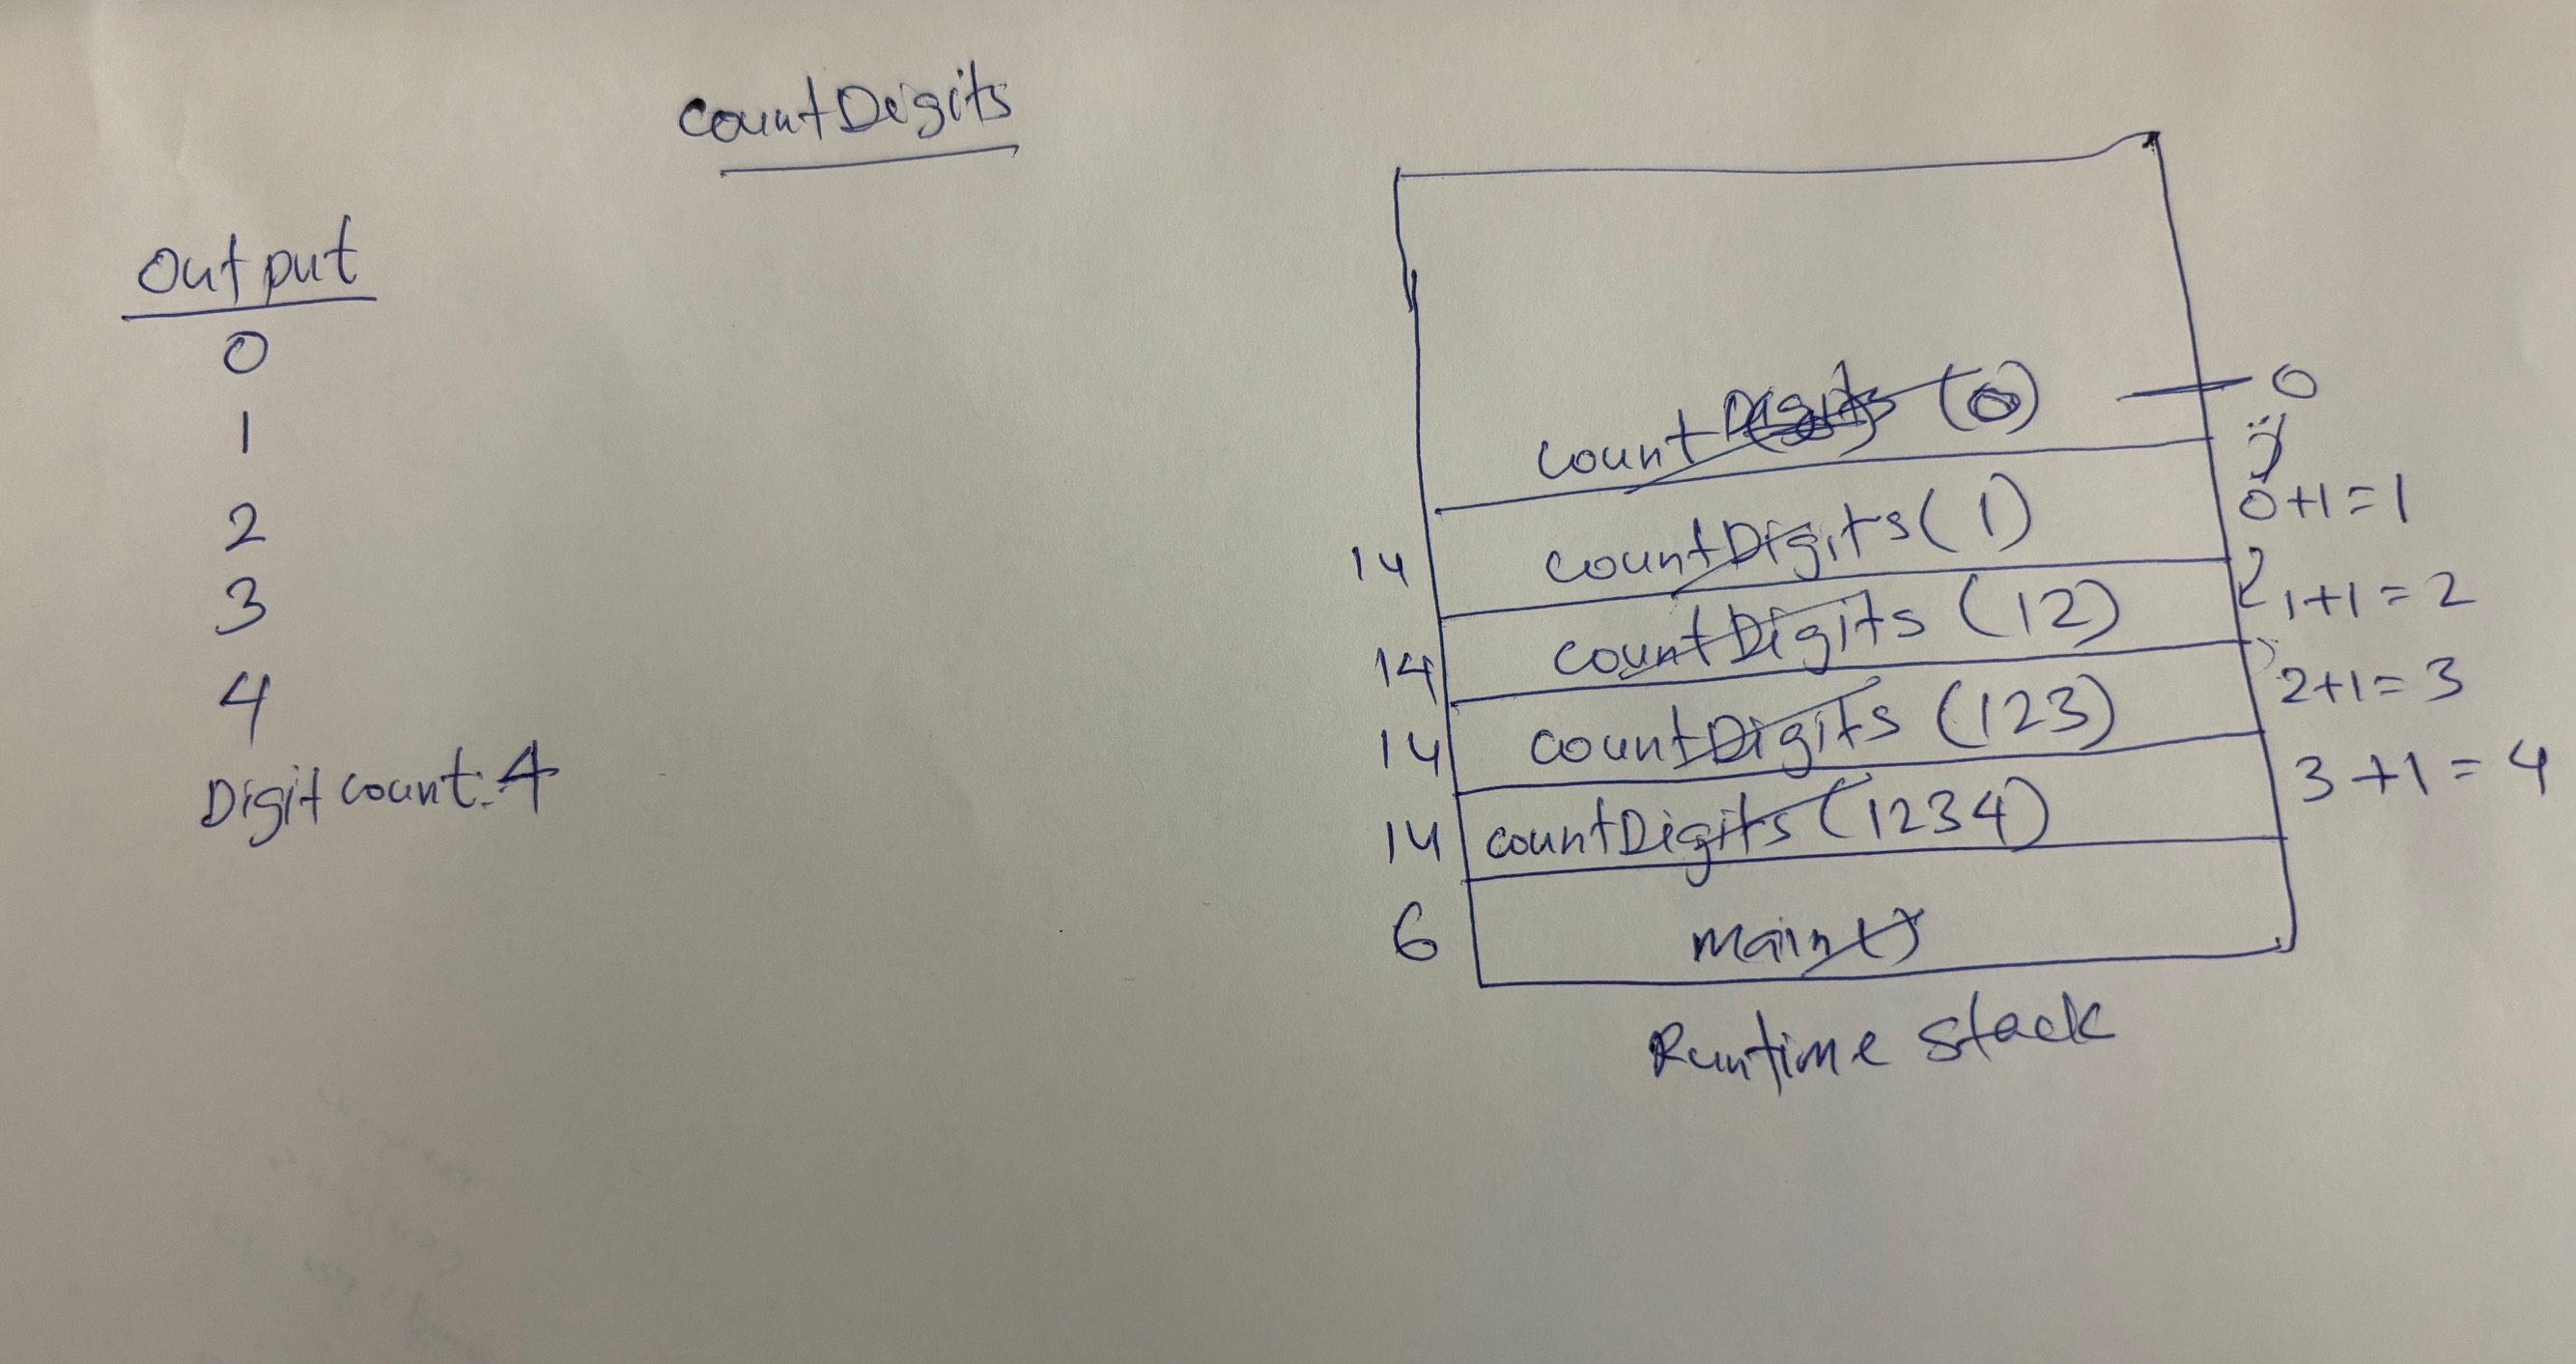 countDigits
Output
0
1
2
3
4
Digit count: 4
countDigits (0) 0
14 countDigits (1) 0+1=1
14 countDigits (12) 1+1=2
14 countDigits (123) 2+1=3
14 countDigits (1234) 3+1=4
6 main()
Runtime stack